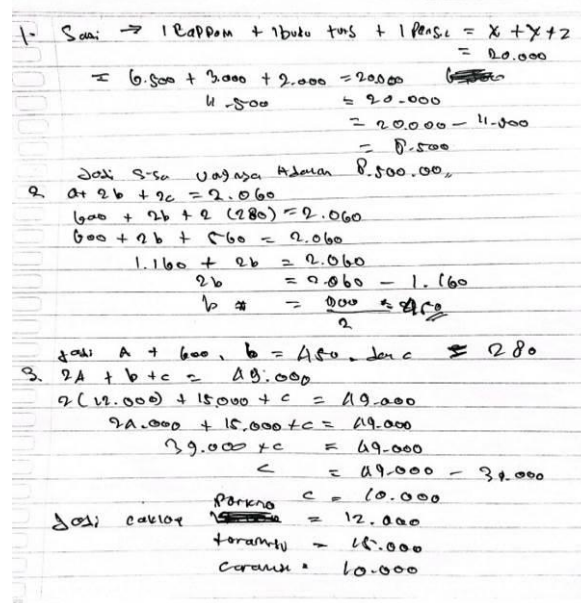 1. Sari → 1 + 1 buku tulis + 1 = x + y + z
= 20.000
= 6.500 + 3.000 + 2.000 = 20.000
11.500 = 20.000
= 20.000 - 11.500
= 8.500
Jadi sisa uangnya Adalah 8.500.00,,
2 a + 2b + 2c = 2.060
600 + 2b + 2 (280) = 2.060
600 + 2b + 560 = 2.060
1.160 + 2b = 2.060
2b = 2.060 - 1.160
b = 900 = 450
2
Jadi A + 600, b = 450. dan c = 280
3. 2A + b + c = 49.000
2(12.000) + 15.000 + c = 49.000
24.000 + 15.000 + c = 49.000
39.000 + c = 49.000
c = 49.000 - 39.000
c = 10.000
Jadi = 12.000
= 15.000
= 10.000